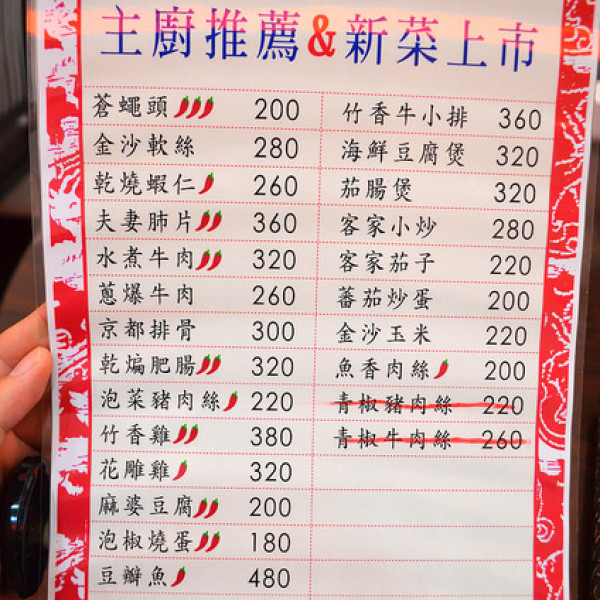 主廚推薦&新菜上市
蒼蠅頭 200
金沙軟絲 280
乾燒蝦仁 260
夫妻肺片 360
水煮牛肉 320
蔥爆牛肉 260
京都排骨 300
乾煸肥腸 320
泡菜豬肉絲 220
竹香雞 380
花雕雞 320
麻婆豆腐 200
泡椒燒蛋 180
豆瓣魚 480
竹香牛小排 360
海鮮豆腐煲 320
茄腸煲 320
客家小炒 280
客家茄子 220
蕃茄炒蛋 200
金沙玉米 220
魚香肉絲 200
青椒豬肉絲 220
青椒牛肉絲 260